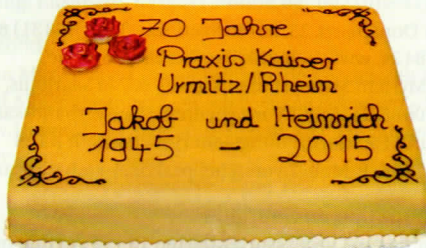 70 Jahre
Praxis Kaiser
Urmitz/Rhein
Jakob und Heinrich
1945 - 2015